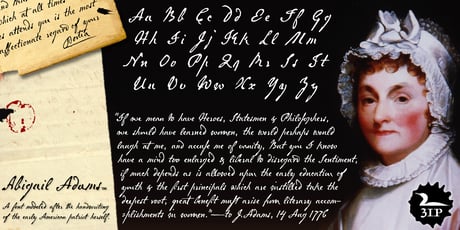 which at all times
attends you is the most
affectionate regard of your
Portia
Aa Bb Cc Dd Ee Ff Gg
Hh Ii Jj Kk Ll Mm
Nn Oo Pp Qq Rr Ss Tt
Uu Vv Ww Xx Yy Zz
"If we mean to have Heroes, Statesmen & Philosophers,
we should have learned women, the world perhaps would
laugh at me, and accuse me of vanity, But you I know
have a mind too enlarged & liberal to disregard the Sentiment,
if much depends as is allowed upon the early education of
youth & the first principals which are instilled take the
deepest root, great benefit must arise from literary accom-
plishments in women."—to J.Adams, 14 Aug 1776
Abigail Adams™
A font modeled after the handwriting
of the early American patriot herself.
3IP